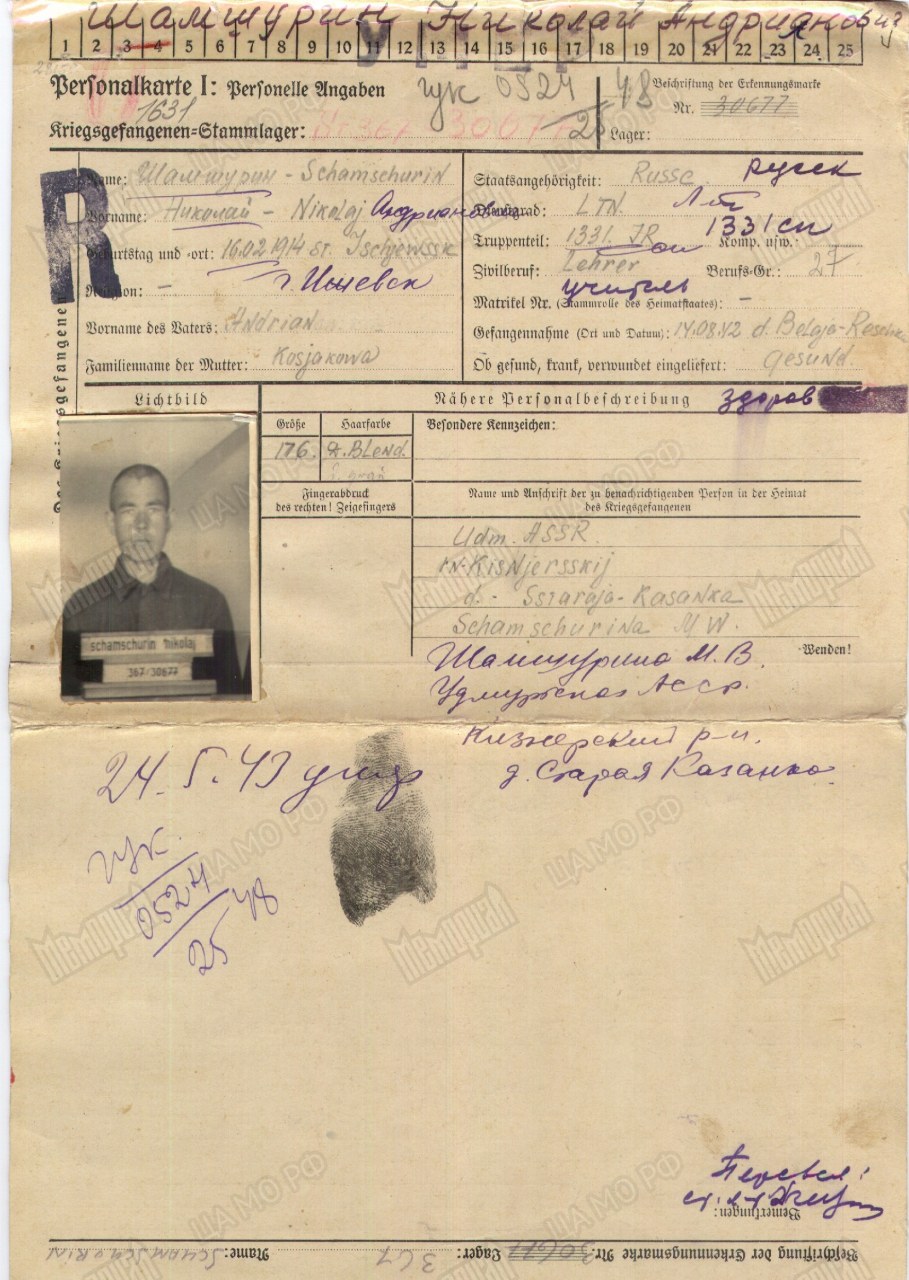 Шамшурин Николай Андрианович
1 2 3 4 5 6 7 8 9 10 11 12 13 14 15 16 17 18 19 20 21 22 23 24 25
Personalkarte I: Personelle Angaben
гук 0524 48
25
Beschriftung der Erkennungsmarke
Nr. 30677
1631
Kriegsgefangenen=Stammlager:
367 30677
Lager:
R
Name: Шамшурин - Schamschurin
Vorname: Николай - Nikolaj Андрианович
Geburtstag und -ort: 16.02.1914 st. Ischjewssk
г. Ижевск
Religion: -
Vorname des Vaters: Andrian
Familienname der Mutter: Kosjakowa
Staatsangehörigkeit: Russe. русск
Dienstgrad: LTN. Л-т
Truppenteil: 1331. JR Komp. usw.: 1331 сп
Zivilberuf: Lehrer Berufs-Gr.: 27
учитель
Matrikel Nr. (Stammrolle des Heimatstaates): -
Gefangennahme (Ort und Datum): 14.08.42 d. Belaja-
Ob gesund, krank, verwundet eingeliefert: Gesund.
здоров
Des Kriegsgefangenen
Lichtbild
Nähere Personalbeschreibung
Größe
Haarfarbe
Besondere Kennzeichen:
176. d. Blond.
Fingerabdruck
des rechten! Zeigefingers
Name und Anschrift der zu benachrichtigenden Person in der Heimat
des Kriegsgefangenen
Udm. ASSR.
rn-Kisnjersskij
d. - Sstaraja-Kasanka
Schamschurina M W.
schamschurin nikolaj
367/30677
Wenden!
Шамшурина М. В.
Удмуртская АССР.
Кизнерский р-н.
д. Старая Казанка
24. 5. 43
гук
0524 48
25
Перевел:
ст. л-т
Bemerkungen:
Beschriftung der Erkennungsmarke Nr. 30677 Lager: 367 Name: SCHAMSCHURIN
Мемориал
ЦАМО РФ